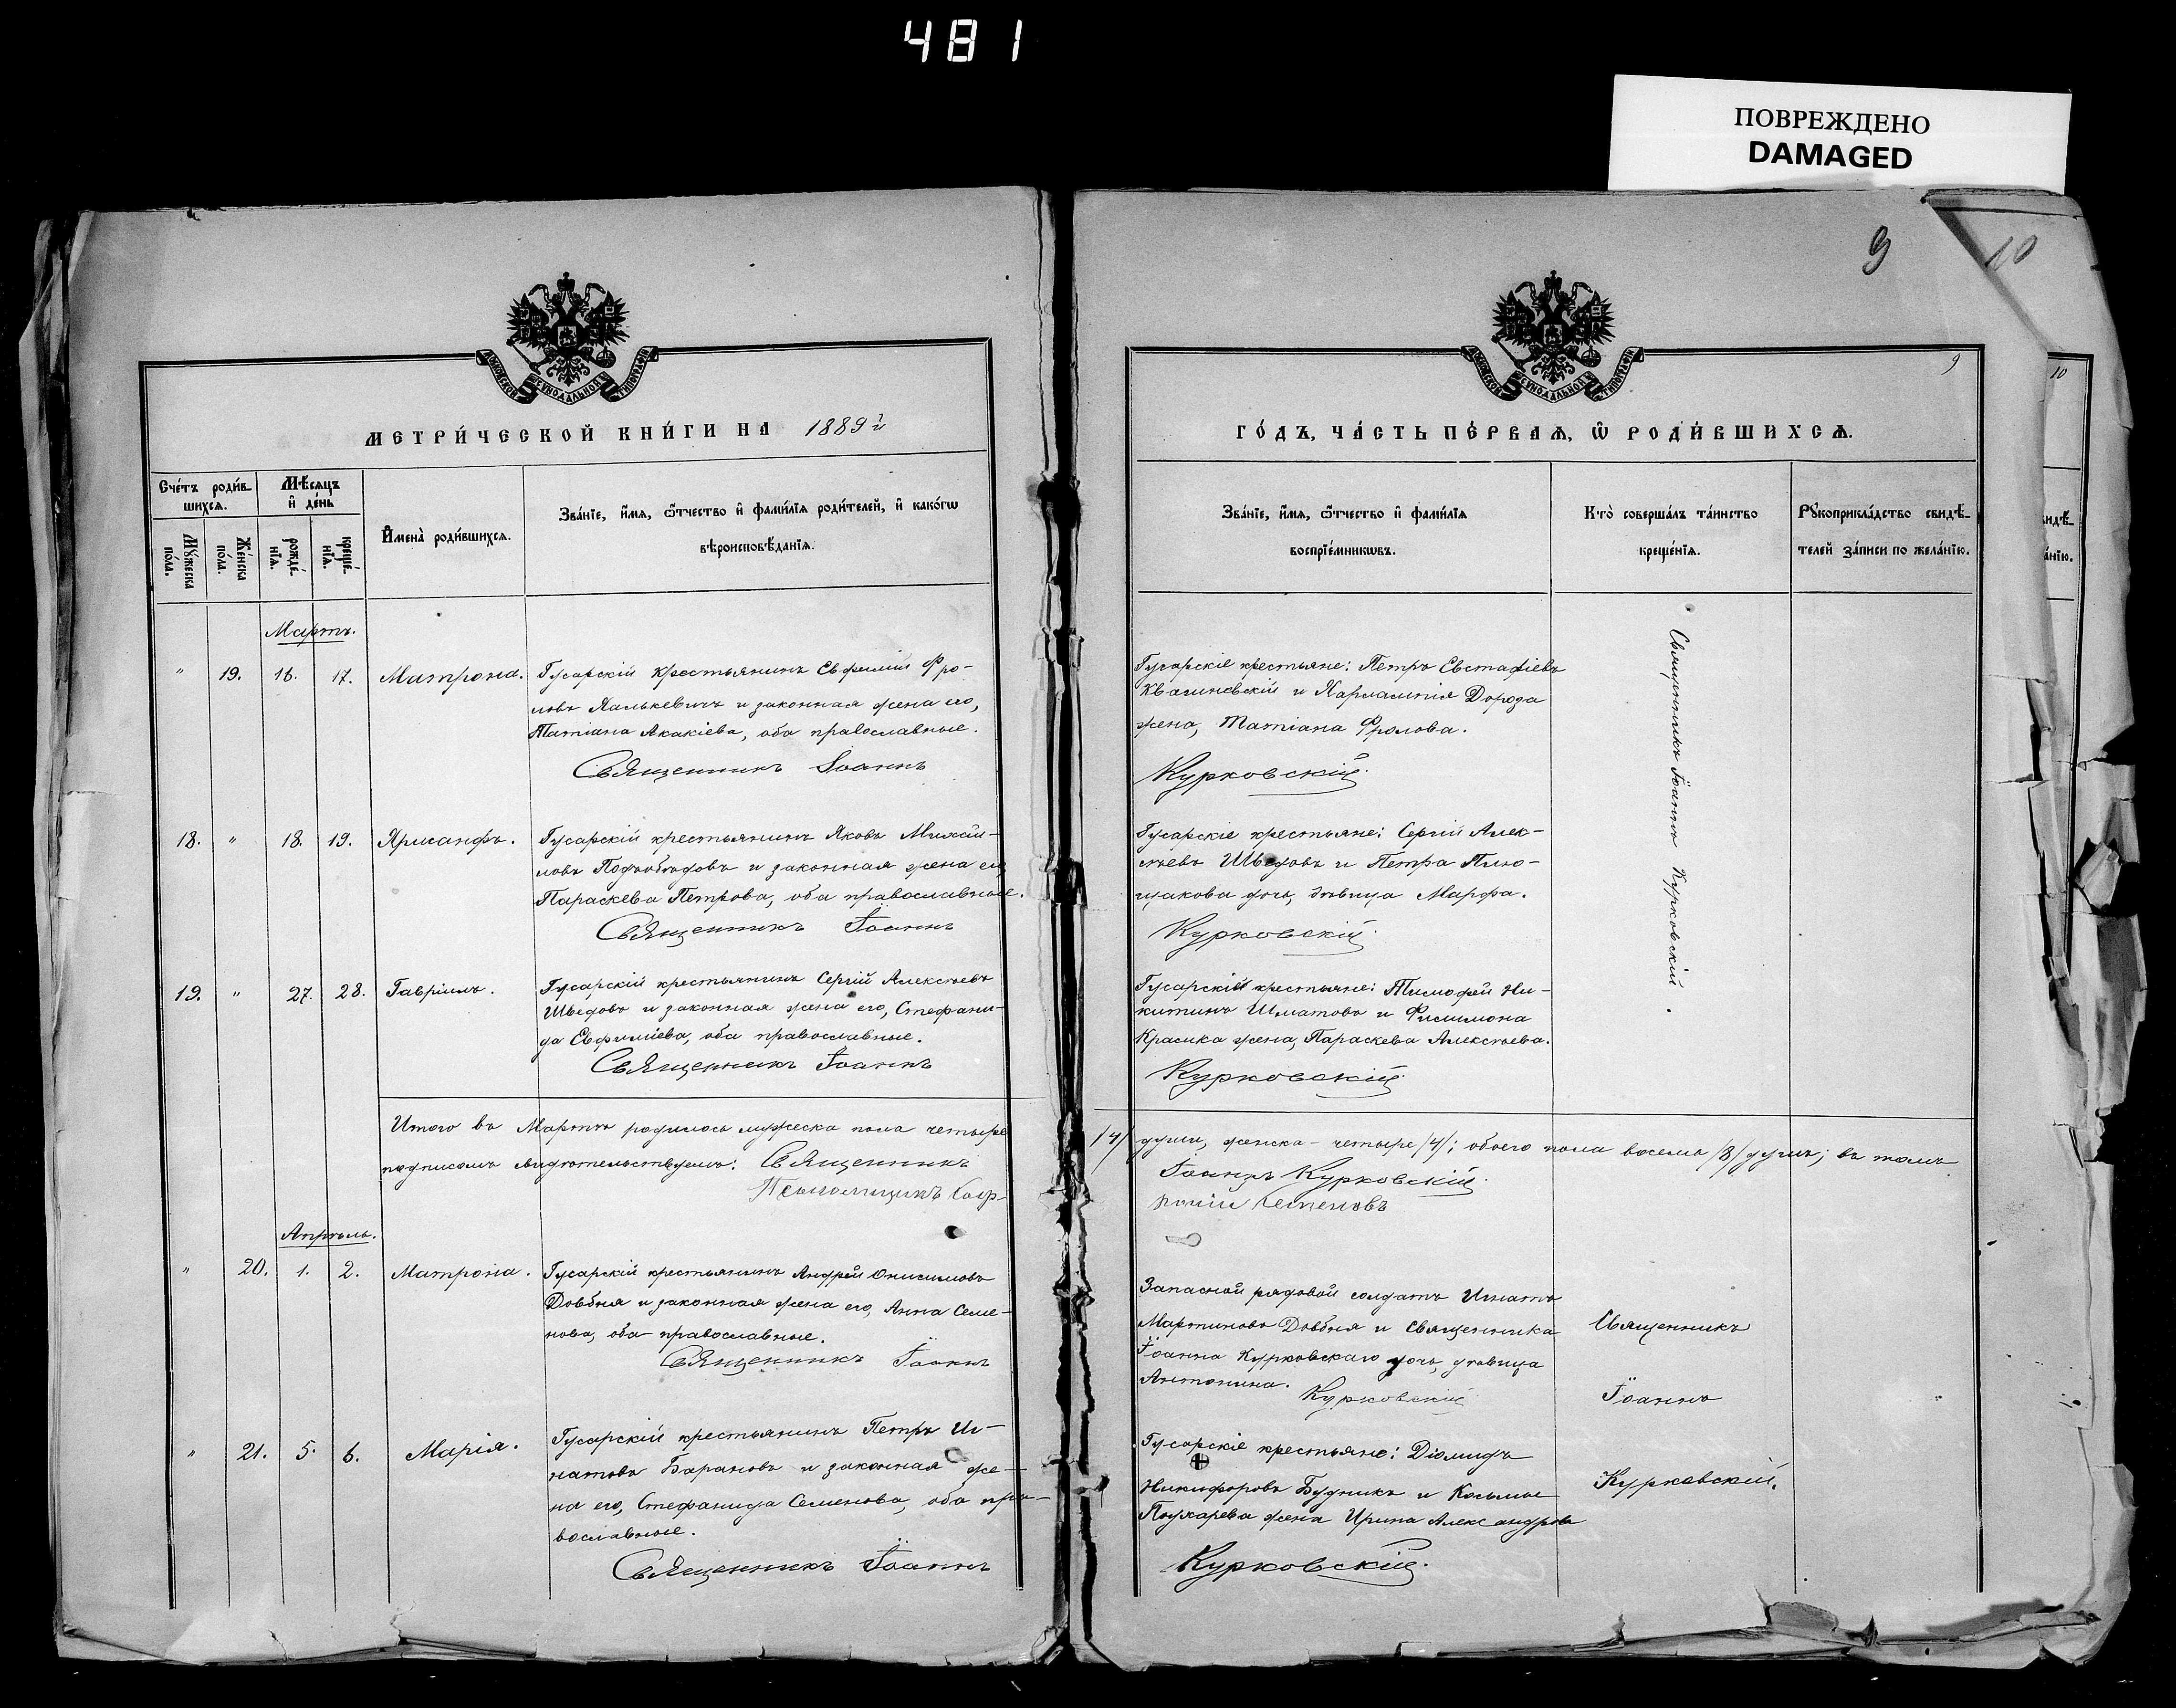 481
ПОВРЕЖДЕНО
DAMAGED
9
10
МОСКОВСКОЙ СѴНОДАЛЬНОЙ ТИПОГРАФІИ
МЕТРИ́ЧЕСКОЙ КНИ́ГИ НА 1889й
Сче́тъ роди́в-
шихсѧ.
Мѣ́сѧцъ
и҆ де́нь
Мꙋ́жеска
по́ла.
Же́нска
по́ла.
рожде́-
нїѧ.
креще́-
нїѧ.
И҆мена̀ роди́вшихсѧ.
Зва́нїе, и҆́мѧ, ѻ҆́тчество и҆ фами́лїѧ роди́телей, и҆ како́гѡ
вѣроисповѣ́данїѧ.
Мартъ.
" 19. 16. 17. Матрона. Гусарскій крестьянинъ Евфимій Фро-
ловъ и законная жена его,
Татіана Акакіева, оба православные.
Священникъ Іоаннъ
18. " 18. 19. Хрисанфъ. Гусарскій крестьянинъ Яковъ Михаи-
ловъ и законная жена его
Параскева Петрова, оба православные.
Священникъ Іоаннъ
19. " 27. 28. Гавріилъ. Гусарскій крестьянинъ Сергій Алексѣевъ
Шведовъ и законная жена его, Стефани-
да Евфиміева, оба православные.
Священникъ Іоаннъ
Итого въ Мартѣ родилось мужеска пола четыре
подписомъ свидѣтельствуемъ: Священникъ
Псаломщикъ Соф-
Апрѣль.
" 20. 1. 2. Матрона. Гусарскій крестьянинъ Андрей Онисимовъ
Довбня и законная жена его, Анна Семе-
нова, оба православные.
Священникъ Іоаннъ
" 21. 5. 6. Марія. Гусарскій крестьянинъ Петръ Иг-
натовъ Барановъ и законная же-
на его, Стефанида Семенова, оба пра-
вославные.
Священникъ Іоаннъ
МОСКОВСКОЙ СѴНОДАЛЬНОЙ ТИПОГРАФІИ
9
ГО́ДЪ, ЧА́СТЬ ПЕ́РВАѦ, Ѽ РОДИ́ВШИХСѦ.
Зва́нїе, и҆́мѧ, ѻ҆́тчество и҆ фами́лїѧ
воспрїе́мникѡвъ.
Кто̀ соверша́лъ та́инство
креще́нїѧ.
Рꙋкоприкла́дство свидѣ́-
телей за́писи по жела́нїю.
Гусарскіе крестьяне: Петръ Евстафіевъ
и Харлампія Дорода
жена, Татіана Фролова.
Курковскій.
Священникъ Іоаннъ Курковскій.
Гусарскіе крестьяне: Сергій Алек-
сѣевъ Шведовъ и Петра Плю-
щакова дочь, дѣвица Марфа.
Курковскій.
Гусарскій крестьяне: Тимофей Ни-
китинъ Шматовъ и Филимона
Красика жена, Параскева Алексѣева.
Курковскій.
/4/ души, женска - четыре /4/; обоего пола восемь /8/ душъ; въ томъ
Іоаннъ Курковскій.
роній Семеновъ
Запасной рядовой солдатъ Игнатъ
Мартиновъ Довбня и Священника
Іоанна Курковскаго дочь, дѣвица
Антонина.
Курковскій
Священникъ
Іоаннъ
Курковскій.
Гусарскіе крестьяне: Діомидъ
Никифоровъ Будникъ и Косьмы
Пожарева жена Ирина Александрова
Курковскій.
10
идѣ́-
а́нїю.